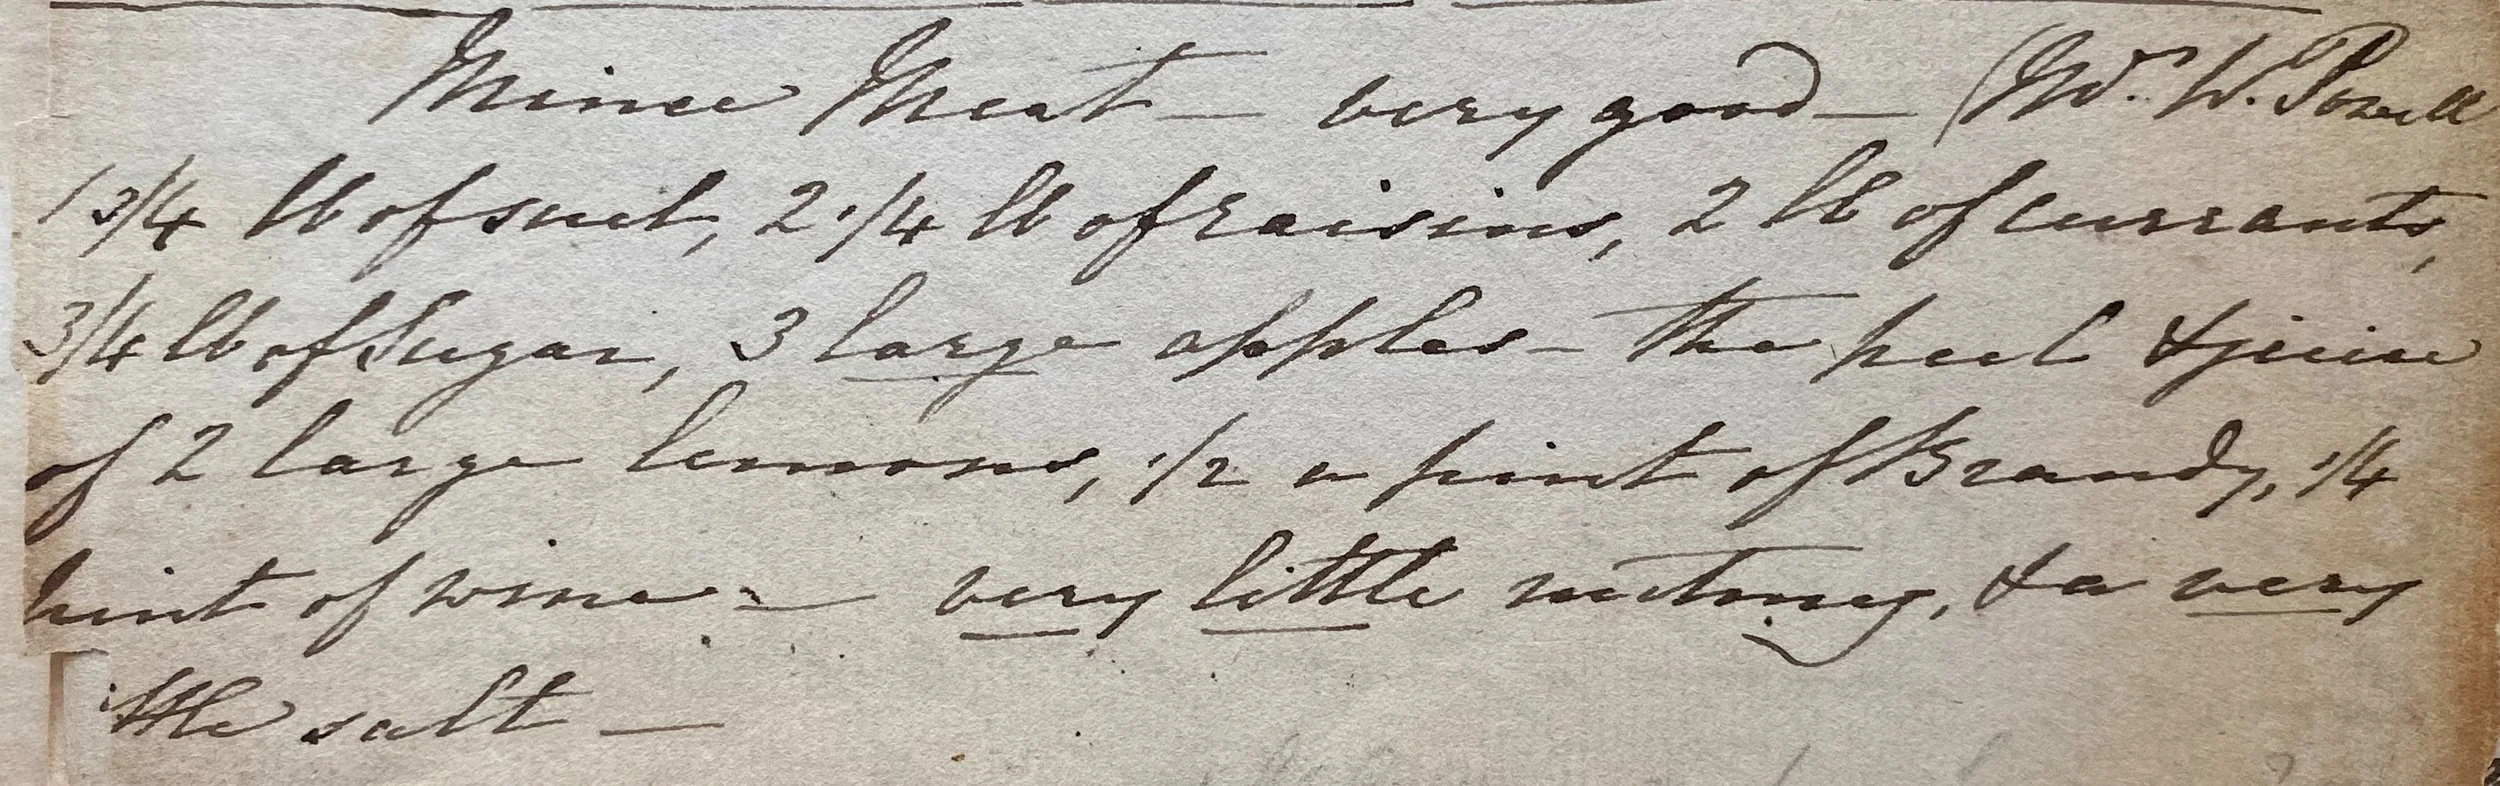 Mince Meat — very good — (Mr. W. Powell
1 3/4 lb of suet, 2 1/4 lb of raisins, 2 lb of currants,
3/4 lb of sugar, 3 large apples — the peel & juice
of 2 large lemons, 1/2 a pint of Brandy, 1/4
pint of wine — very little nutmeg, & a very
ttle salt —